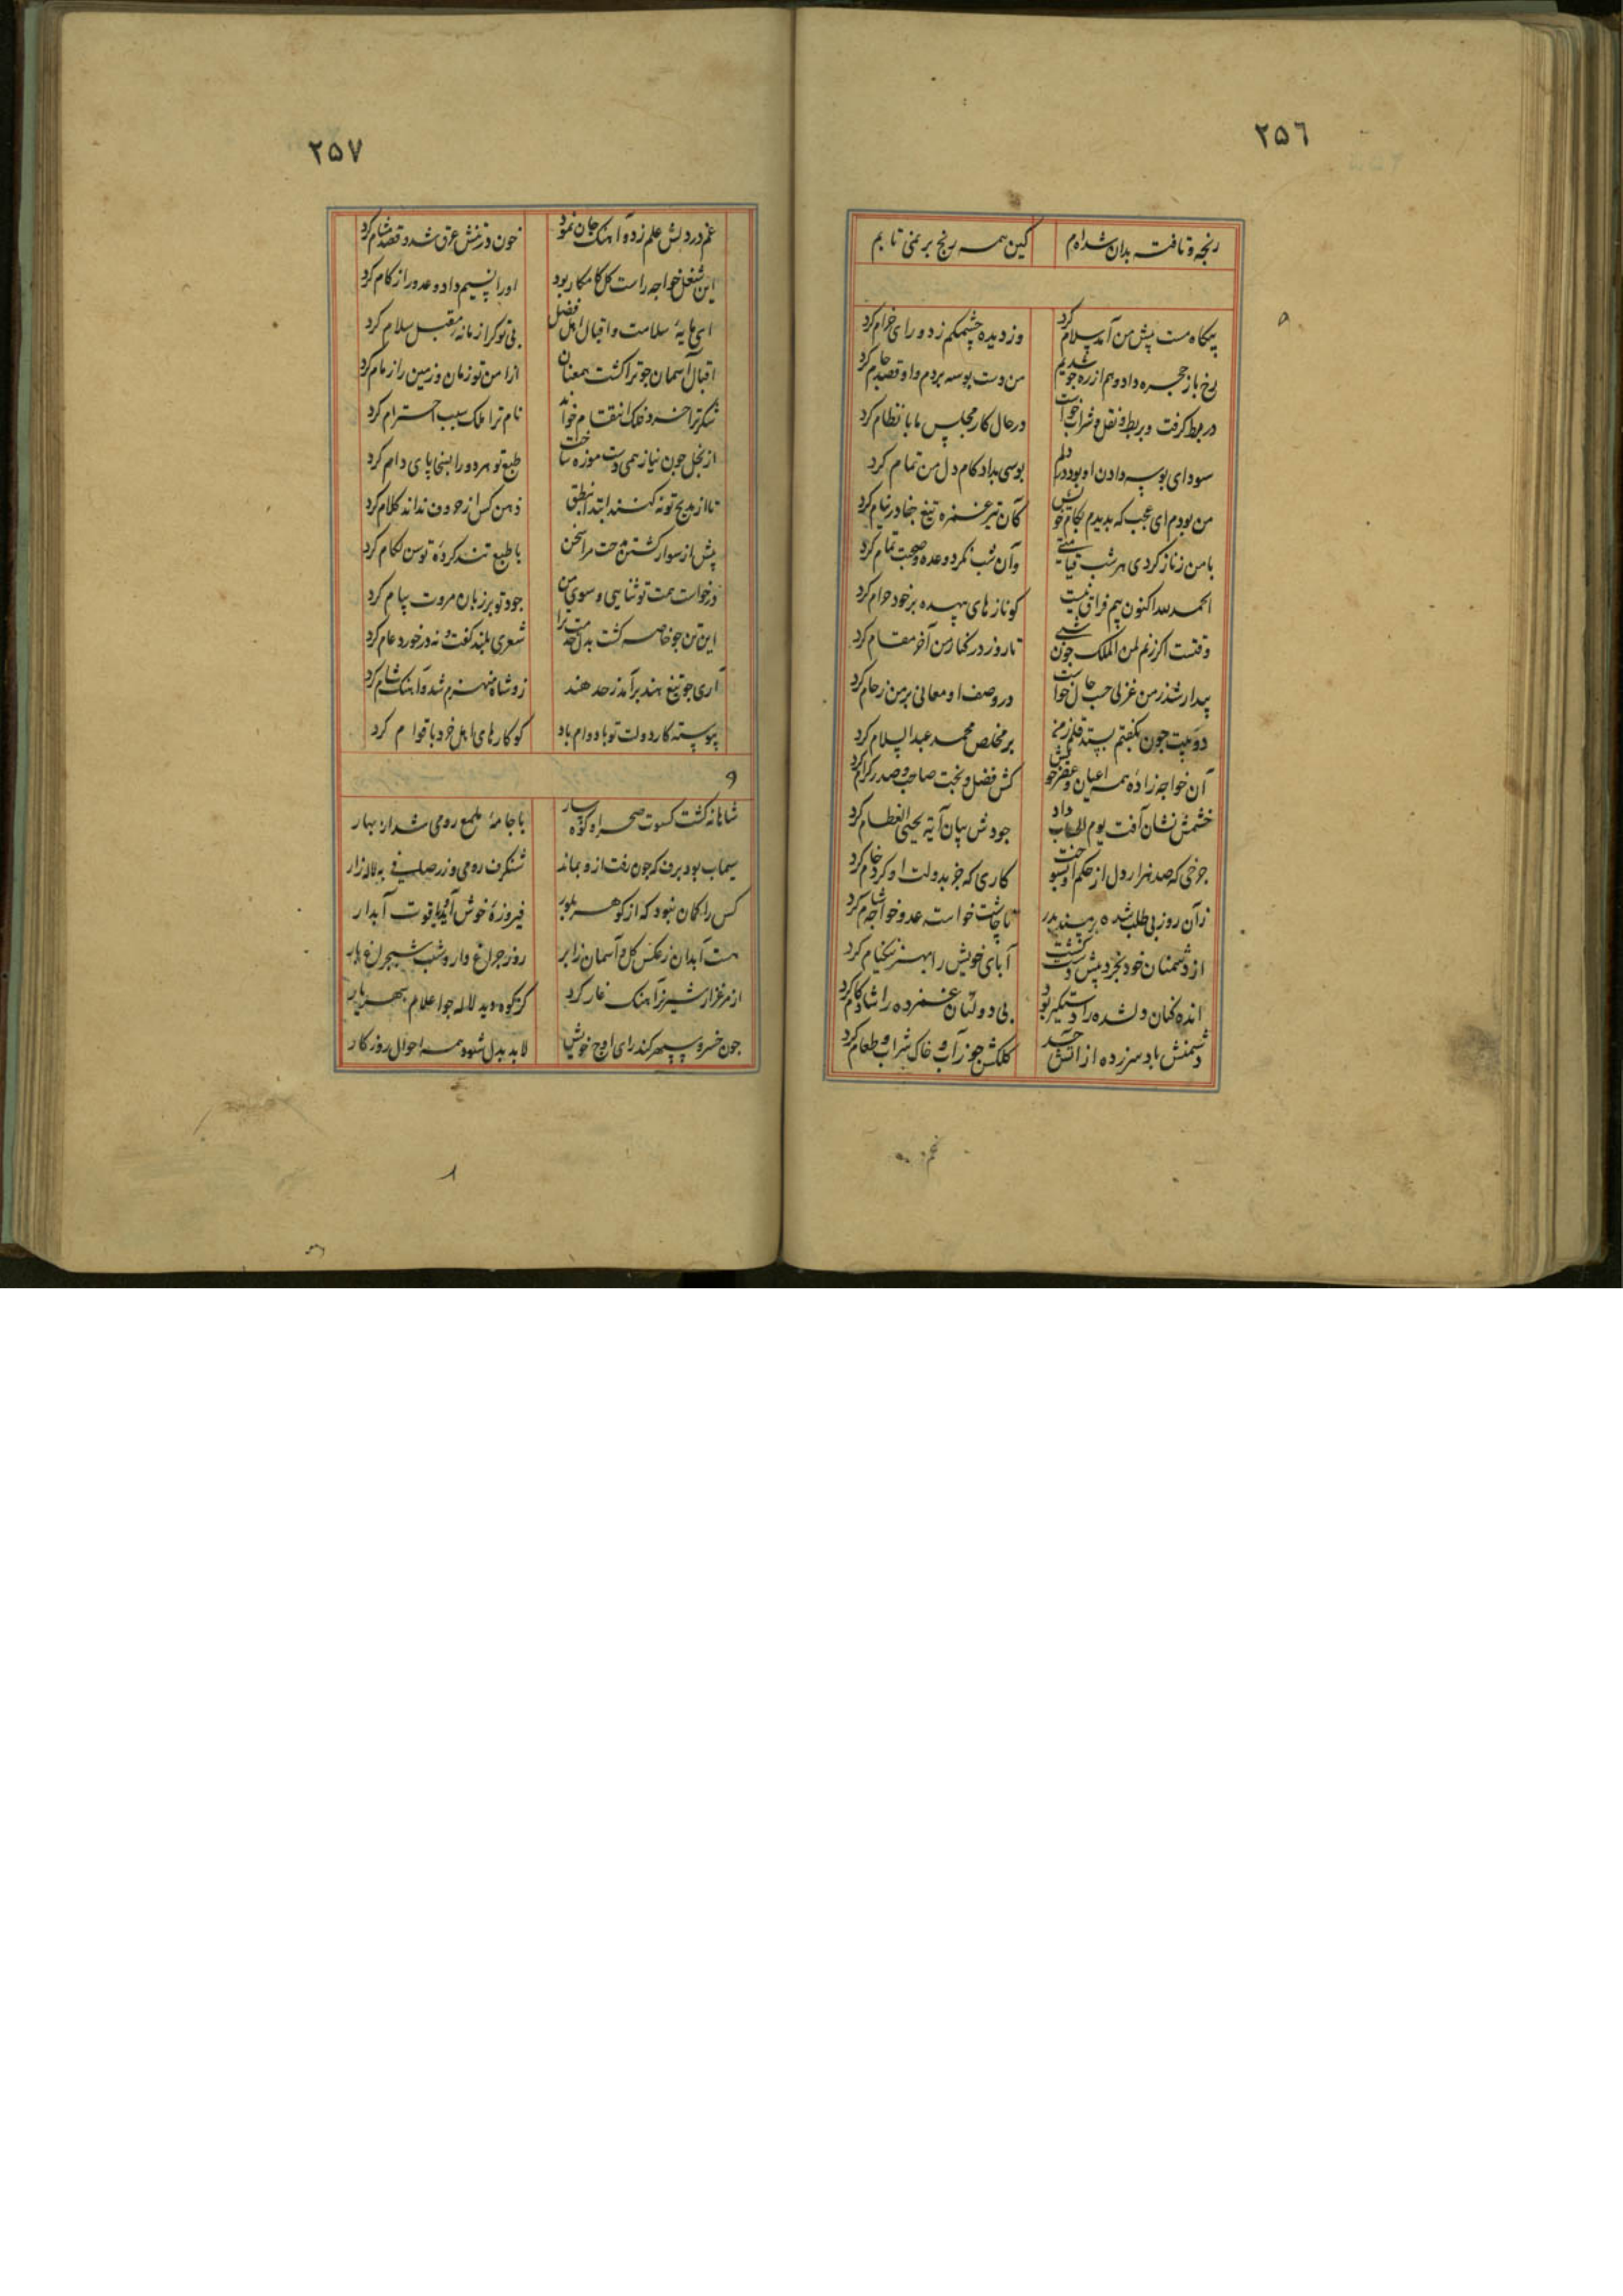 ٢٥٦
رنجه و تافته بدان شده‌ام کین همه رنج بر نمی تابم
٩
پیکاه مست پیش من آمد سلام کرد وز دیده چشمکم زد و رای خرام کرد
رخ باز حجره داد و هم از ره جو شدیم من دست بوسه بردم و او قصد جام کرد
در بط کرفت و بربط و نقل و شراب خواست در حال کار مجلس ما با نظام کرد
سودای بوسه دادن او بود در دلم بوسی بداد کام دل من تمام کرد
من بودم ای عجب که بدیدم بکام خویش کان تیر غمزه تیغ جفا در نیام کرد
با من ز ناز کردی هر شب قیامتی وآن شب نکرد وعده و صحبت تمام کرد
الحمد لله اکنون بیم فراق نیست کو ناز های بیهده بر خود حرام کرد
وقتست اکر زنم لمن الملک جون شبی تا روز در کنار من آخر مقام کرد
بیدار شد ز من غزلی حسب حال خواست در وصف او معانی بر من زحام کرد
دو بیت جون بکفتم ببست قلم ز من بر مخلص محمد عبد السلام کرد
آن خواجه زاده همه اعیان و عصر خویش کش فضل و بخت صاحب و صدر کرام کرد
خشمش نشان آفت یوم الحساب داد جودش بیان آیة یحیی العظام کرد
جرخی که صد هزار دل از حکم او بسوخت کاری که جز بدولت او کرد خام کرد
زآن روز بی طلب شده بر مسند پدر تا چاشت خواست عدو خواجه شام کرد
از دشمنان خود بخرد پیش دست کشت آبای خویش را بهنر نیکنام کرد
انده کنان دلشده را دستکیر بود بی دولتان غمزده را شادکام کرد
دشمنش باد سر زده از آتش حسد کلکش جو ز آب و خاک شراب و طعام کرد
٢٥٧
غم در دلش علم زد و آهنک جان نمود خون در تنش عرق شد و قصد مشام کرد
این شغل خواجه راست کل کامکار بود او را نسیم داد و عدو را زکام کرد
ای مایهٔ سلامت و اقبال اهل فضل بی تو کرا زمانه مقبل سلام کرد
اقبال آسمان جو ترا کشت همعنان از امن تو زمان و زمین را زمام کرد
شکر ترا خرد فلک انتقام خواند نام ترا ملک سبب احترام کرد
از بخل جون نیاز همی دست موزه ساخت طبع تو هر دو را بسخا پای دام کرد
تا از مدیح تو نکنند ابتدا نطق ذهن کس از حروف نداند کلام کرد
پیش از سوار کشتن مدحت مرا سخن با طبع تند کردهٔ توسن لکام کرد
درخواست همت تو ثنایی و سوی من جود تو بر زبان مروت پیام کرد
این تن جو خاصه کشت بدل خدمت ترا شعری بلند کفت و نه در خورد عام کرد
آری جو تیغ هند برآمد ز حد هند زو شاه منهزم شد و آهنک شام کرد
پیوسته کار دولت تو با دوام باد کو کار های اهل خرد با قوام کرد
و
شاهانه کشت کسوت صحرا و کوهسار با جامهٔ ملمع رومی شد از بهار
سیماب بود برف که جون رفت ازو بماند شنکرف رومی و زر صلی فی به لاله زار
کس را کمان نبود که از کوهر بلور فیروزهٔ خوش آید و یاقوت آبدار
هست آبدان ز عکس کل و آسمان ز ابر روز چراغ وار و شب شب چراغ بار
از مرغزار شیر نر آهنک غار کرد کز کوه دید لاله جو اعلام شهریار
جون خسرو سپهر کند رای اوج خویش لابد بدل شود همه احوال روزکار